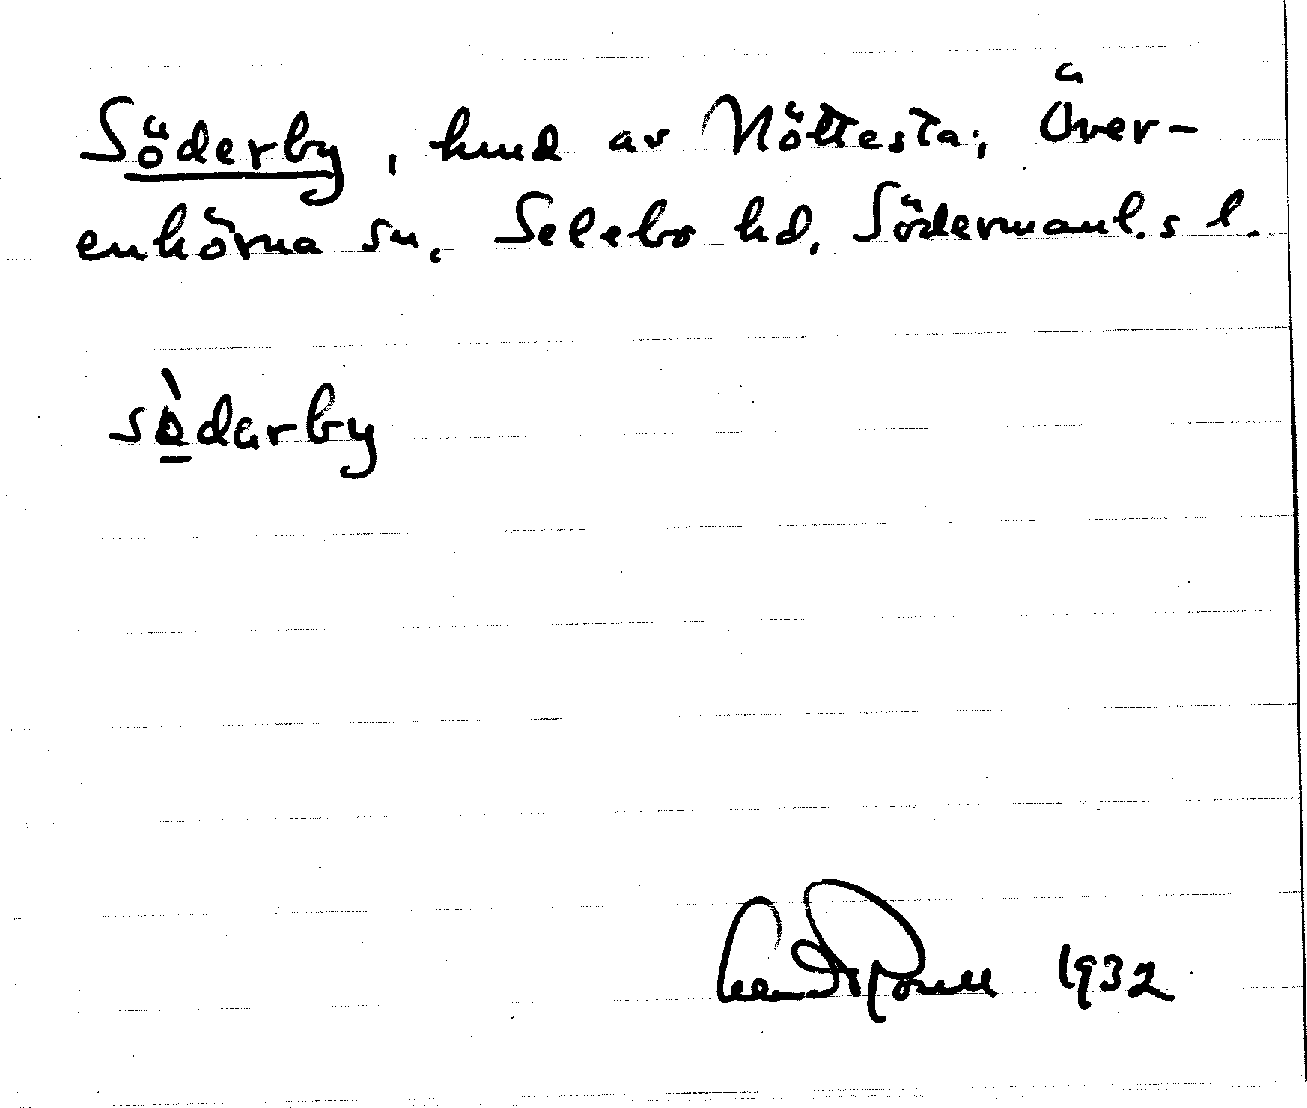 Söderby, hmd av Nöttesta, Över-
enhörna sn. Selebo hd. Södermanl.s l.
sö̀darby
1932